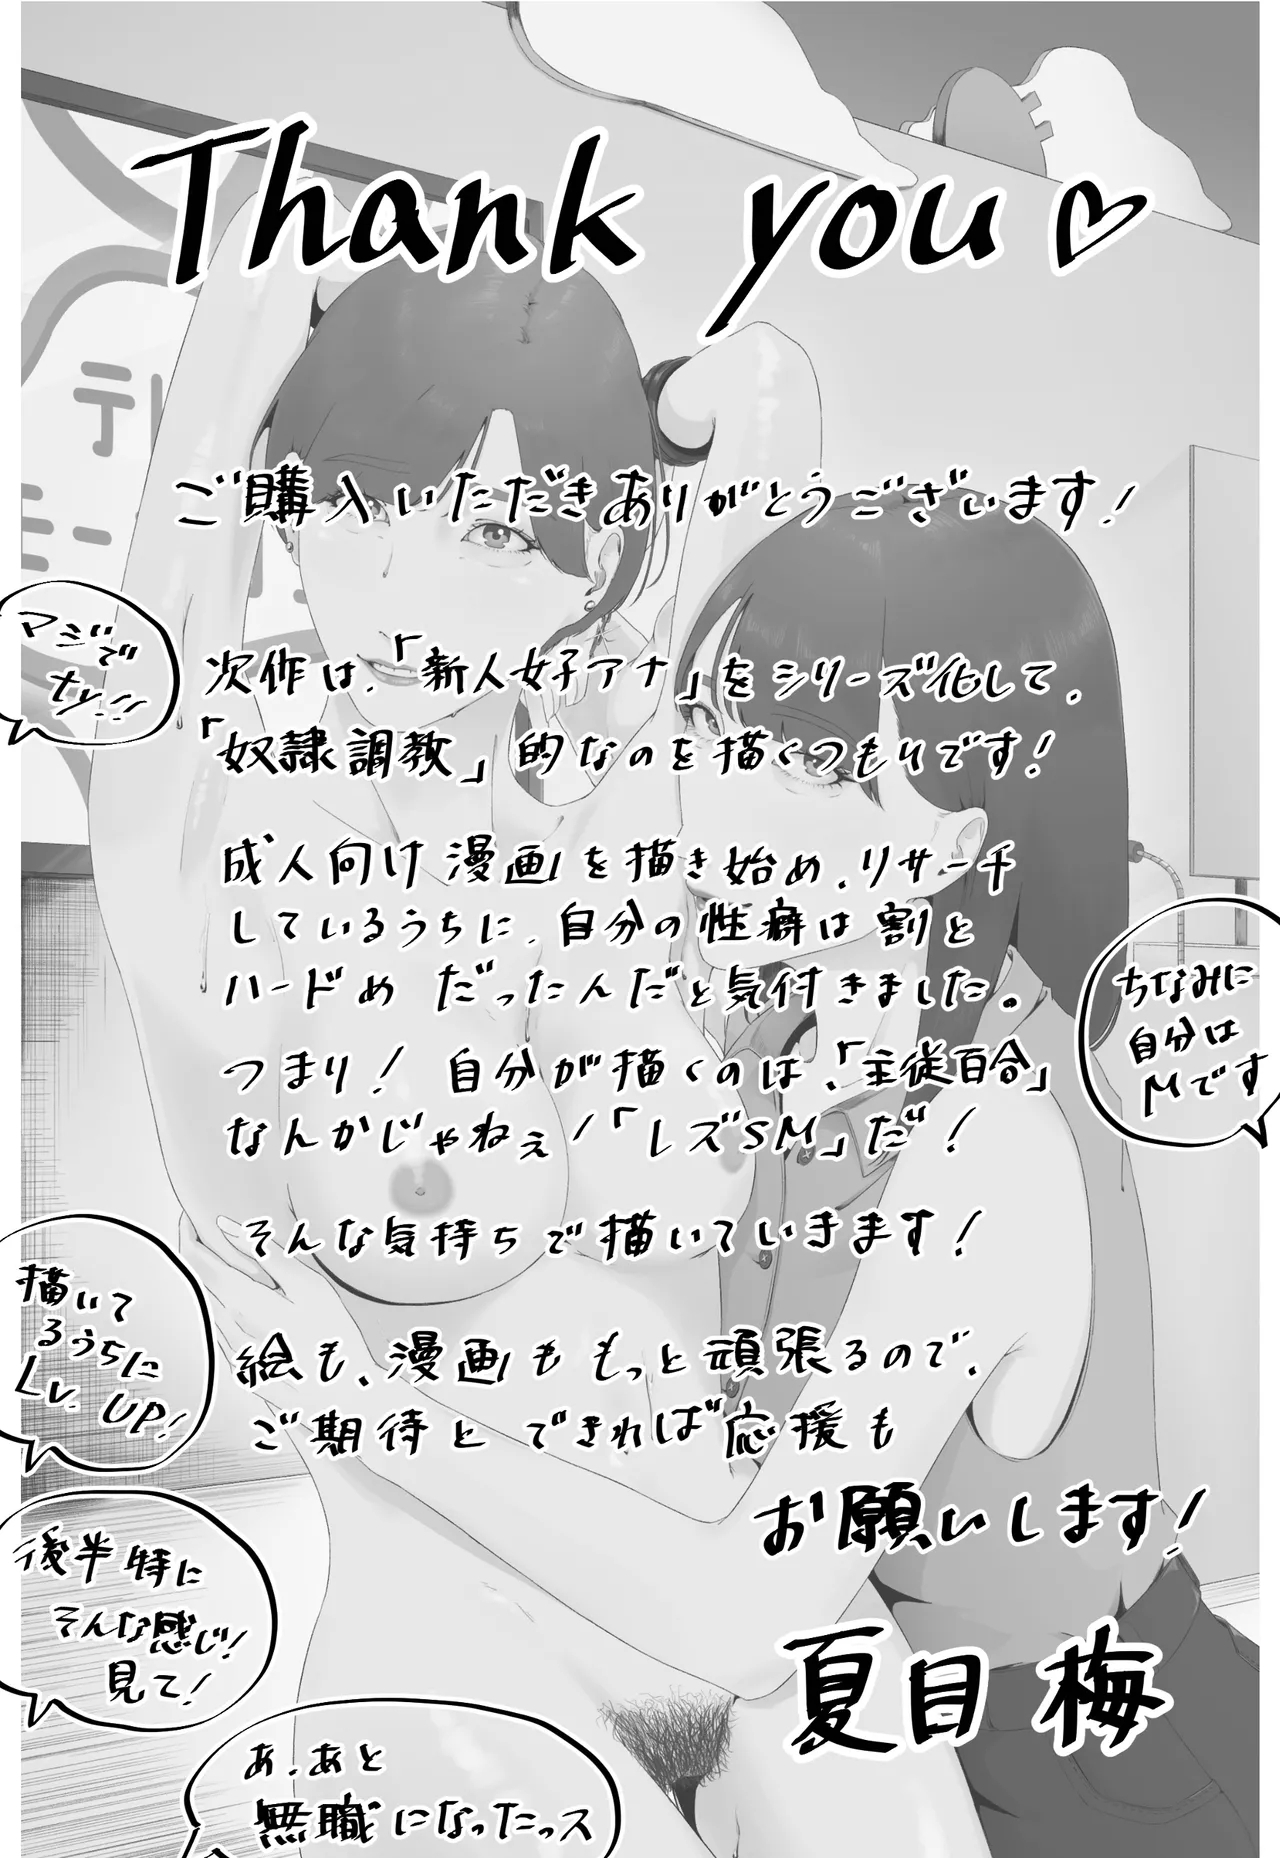 Thank you♡
ご購入いただきありがとうございます!
マジで
ナレ…!!
次作は、「新人女子アナ」をシリーズ化して、
「奴隷調教」的なのを描くつもりです!
成人向け漫画を描き始め、リサーチ
しているうちに、自分の性癖は割と
ハードめだったんだと気付きました。
ちなみに
自分は
Mです
つまり! 自分が描くのは、「主従百合」
なんかじゃねぇ!「レズSM」だ!
そんな気持ちで描いていきます!
描いて
るうちに
Lv.UP!
絵も、漫画ももっと頑張るので、
ご期待とできれば応援も
お願いします!
後半特に
そんな感じ!
見て!
夏目 梅
あ、あと
無職になったっス
テレ
モー